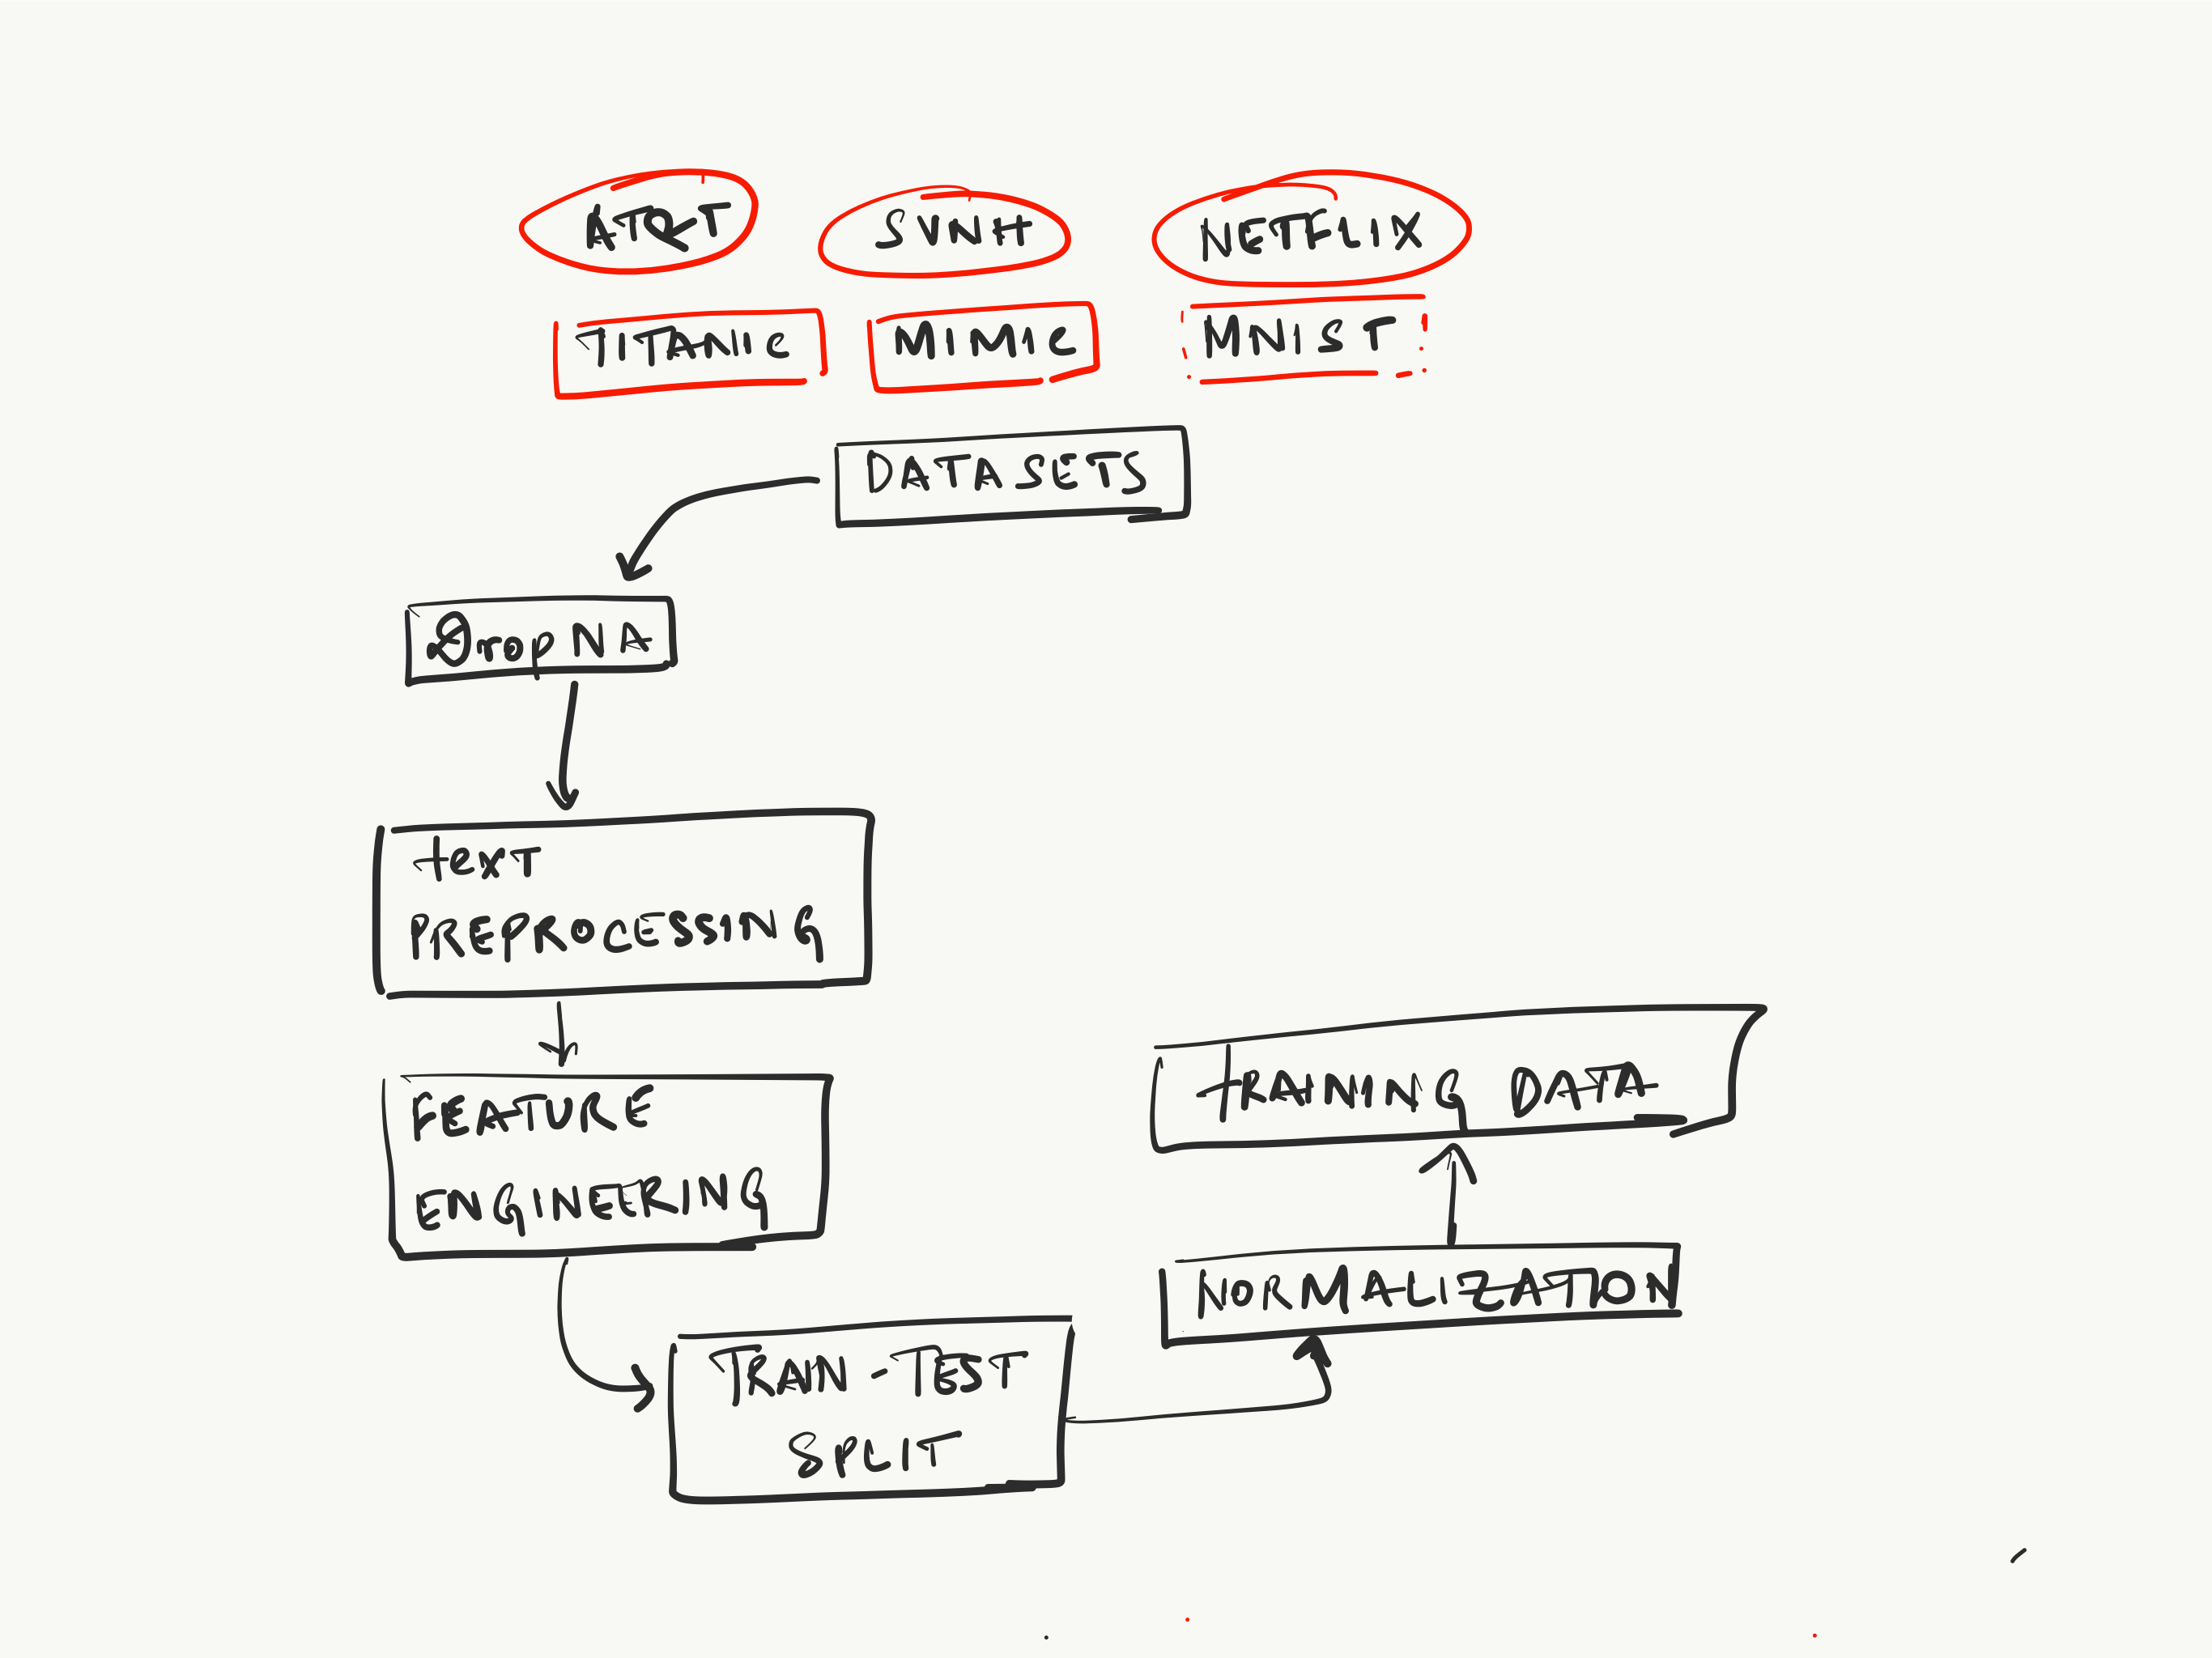 AT&T
SVNH
NETFLIX
TITANIC
MIMIC
MNIST
DATASETS
DropNA
text
PREPROCESSING
FEATURE
ENGINEERING
TRAINING DATA
NORMALIZATION
TRAIN-TEST
SPLIT